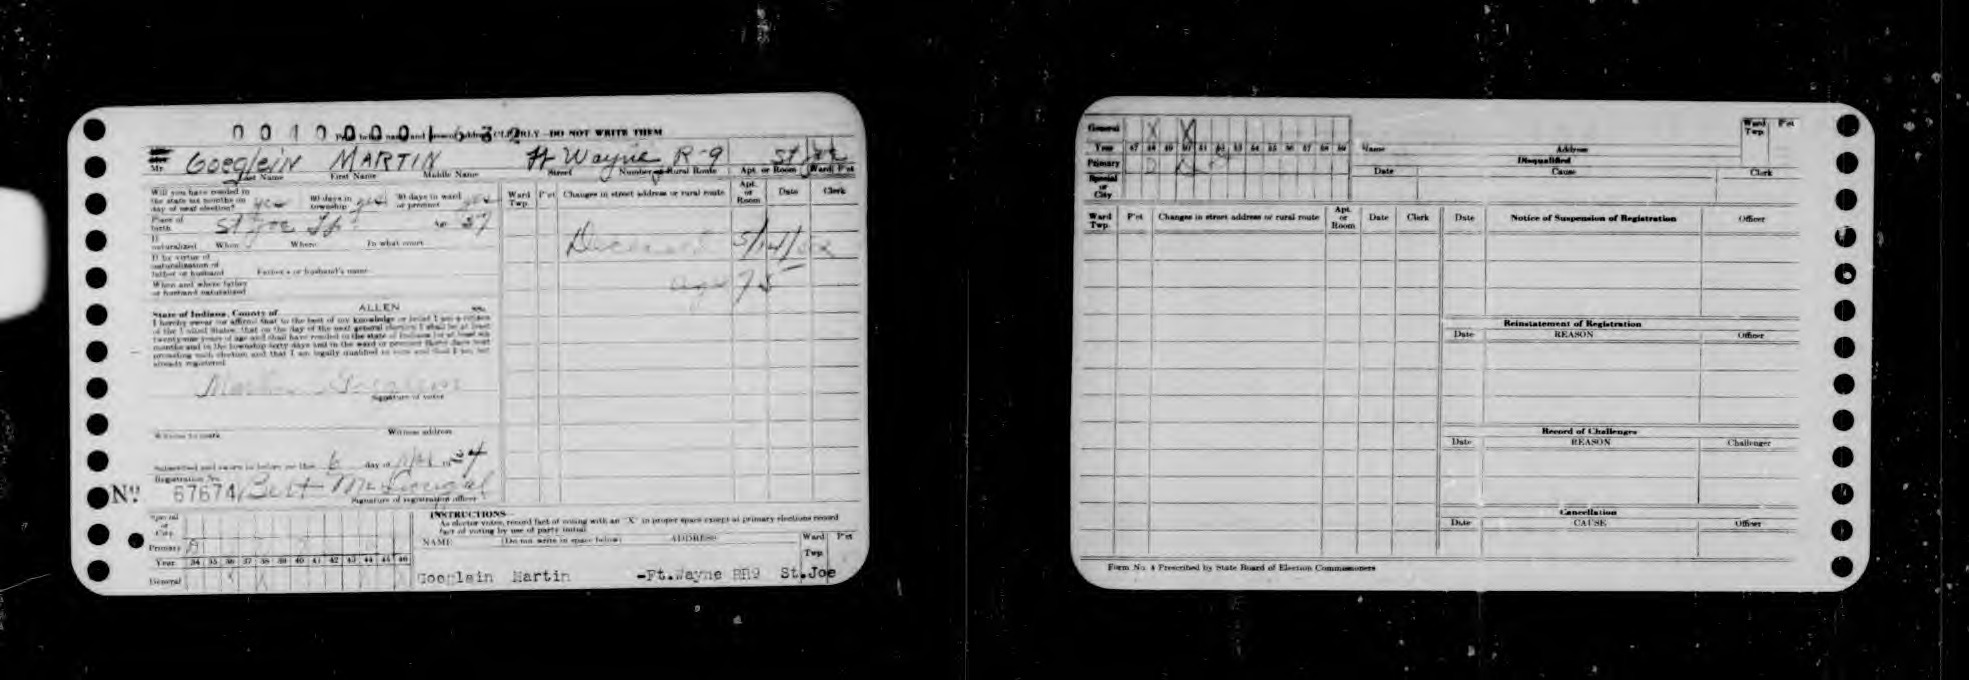 00100001632
CLEARLY—DO NOT WRITE THEM
Mr. Goeglein MARTIN Ft Wayne R-9 St Joe
Last Name First Name Middle Name Street Number or Rural Route Apt. or Room Ward P'ct
Will you have resided in
the state six months on
day of next election? yes 60 days in township yes 30 days in ward or precinct yes
Place of birth St Joe Tp. Age 57
If naturalized When Where In what court
If by virtue of
naturalization of
father or husband Father's or husband's name
When and where father
or husband naturalized
State of Indiana, County of ALLEN ss.
I hereby swear (or affirm) that to the best of my knowledge or belief I am a citizen
of the United States, that on the day of the next general election I shall be at least
twenty-one years of age and shall have resided in the state of Indiana for at least six
months and in the township sixty days and in the ward or precinct thirty days next
preceding such election and that I am legally qualified to vote and that I am not
already registered.
Martin Goeglein
Signature of voter
Witness to mark Witness address
Subscribed and sworn to before me this 6 day of 19 34
Registration No.
No. 67674 Bert McDougal
Signature of registration officer
Ward Twp. P'ct Changes in street address or rural route Apt. or Room Date Clerk
Deceased 5/14/
age 75
Special or City
Primary
Year 34 35 36 37 38 39 40 41 42 43 44 45 46
General
INSTRUCTIONS
As elector votes, record fact of voting with an "X" in proper space except at primary elections record
fact of voting by use of party initial.
NAME (Do not write in space below) ADDRESS Ward Twp. P'ct
Goeglein Martin -Ft.Wayne RR9 St.Joe
General X X
Year 47 48 49 50 51 52 53 54 55 56 57 58 59
Primary D
Special or City
Name Address Ward Twp. P'ct
Disqualified
Date Cause Clerk
Ward Twp. P'ct Changes in street address or rural route Apt. or Room Date Clerk
Date Notice of Suspension of Registration Officer
Reinstatement of Registration
Date REASON Officer
Record of Challenges
Date REASON Challenger
Cancellation
Date CAUSE Officer
Form No. 4 Prescribed by State Board of Election Commissioners